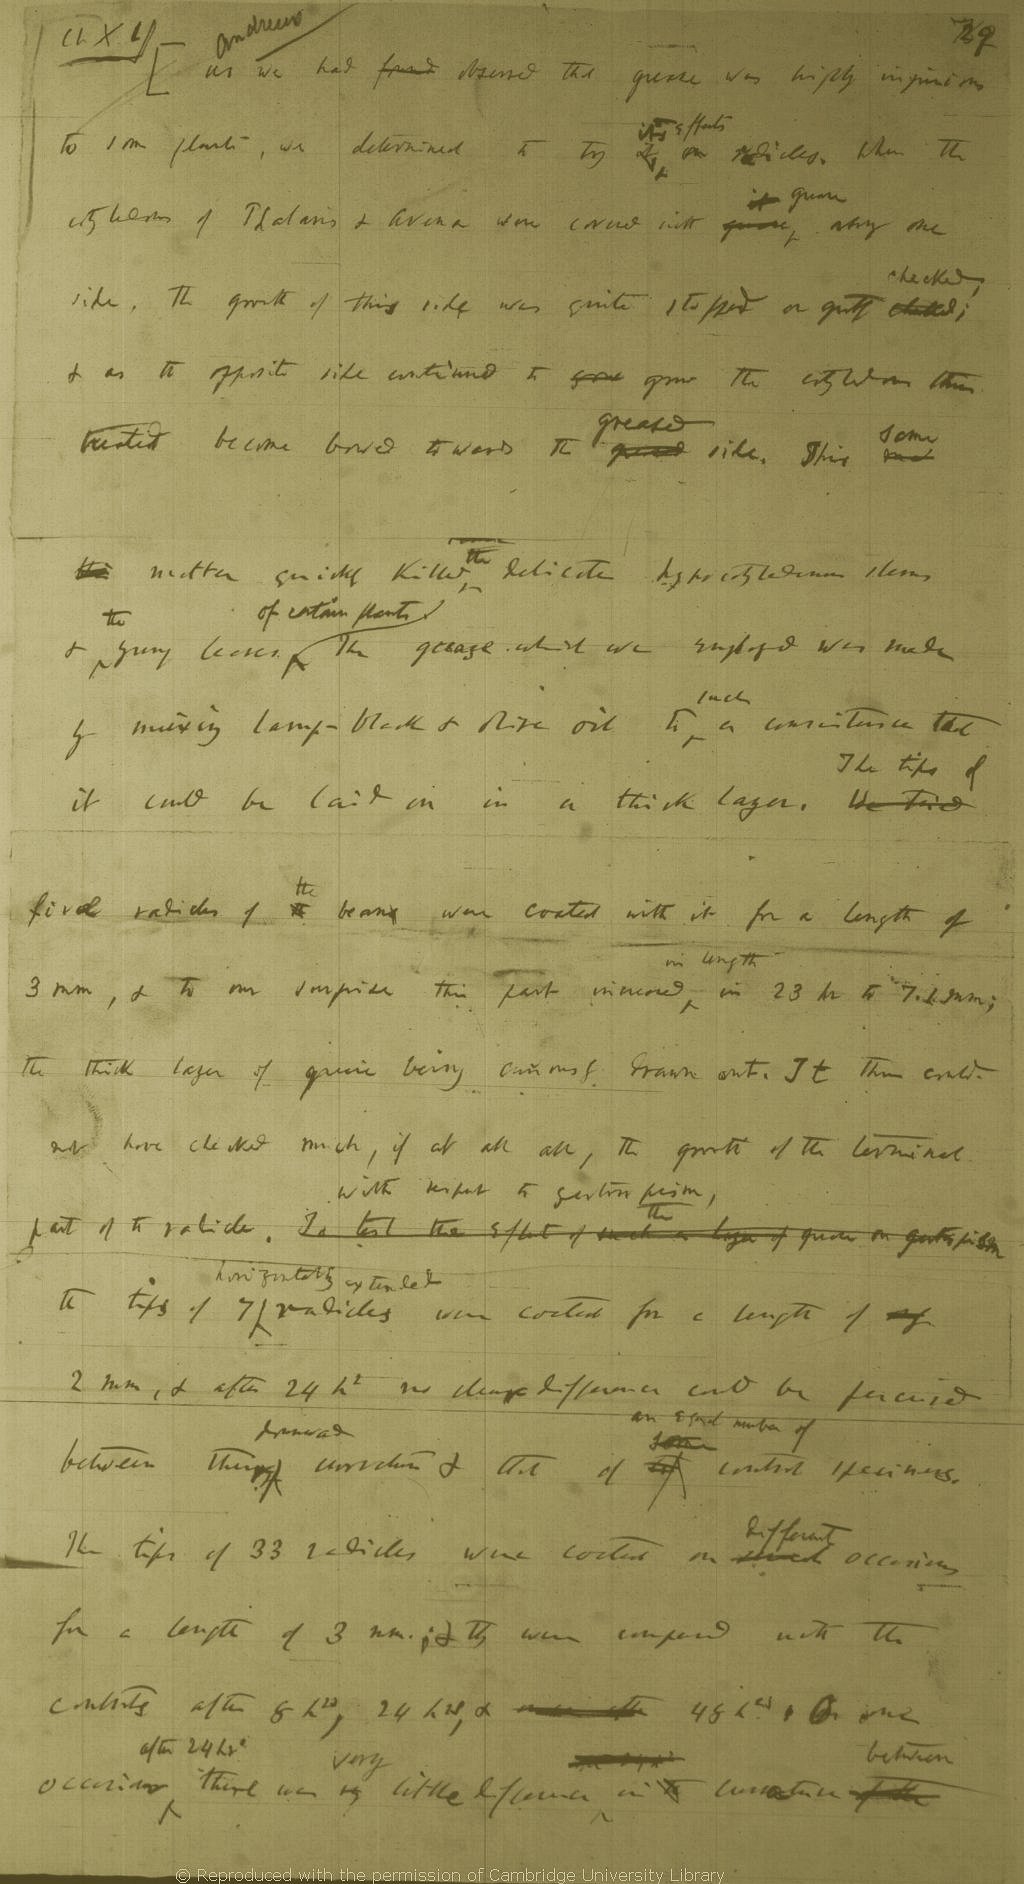 Ch XI
Andrews
29
as we had found observed that grease was highly injurious
to some plants, we determined to try its effects on radicles. When the
cotyledons of Phalaris & Avena were covered with grease along one
side, the growth of this side was quite stopped or greatly checked,
& as the opposite side continued to grow the cotyledons thus
treated become bowed towards the greased side. This same
matter quickly killed the delicate hypocotyledonous stems
& the young leaves of certain plants. The grease which we employed was made
by mixing lamp-black & olive oil to such a consistence that
it could be laid on in a thick layer. The tips of
five radicles of the bean were coated with it for a length of
3 mm, & to our surprise this part increased in length in 23 hr to 7.1 mm;
the thick layer of grease being curiously drawn out. It thus could
not have checked much, if at all, the growth of the terminal
part of the radicle. With respect to geotropism,
To test the effect of such a layer of grease on geotropism
the tips of 7 horizontally extended radicles were coated for a length of
2 mm, & after 24 hr no clear difference could be perceived
between their downward curvature & that of an equal number of control specimens.
The tips of 33 radicles were coated on different occasions
for a length of 3 mm.; & they were compared with the
controls after 8 hrs, 24 hrs, & 48 hrs. On one
occasion, after 24 hrs there was very little difference in curvature between
© Reproduced with the permission of Cambridge University Library